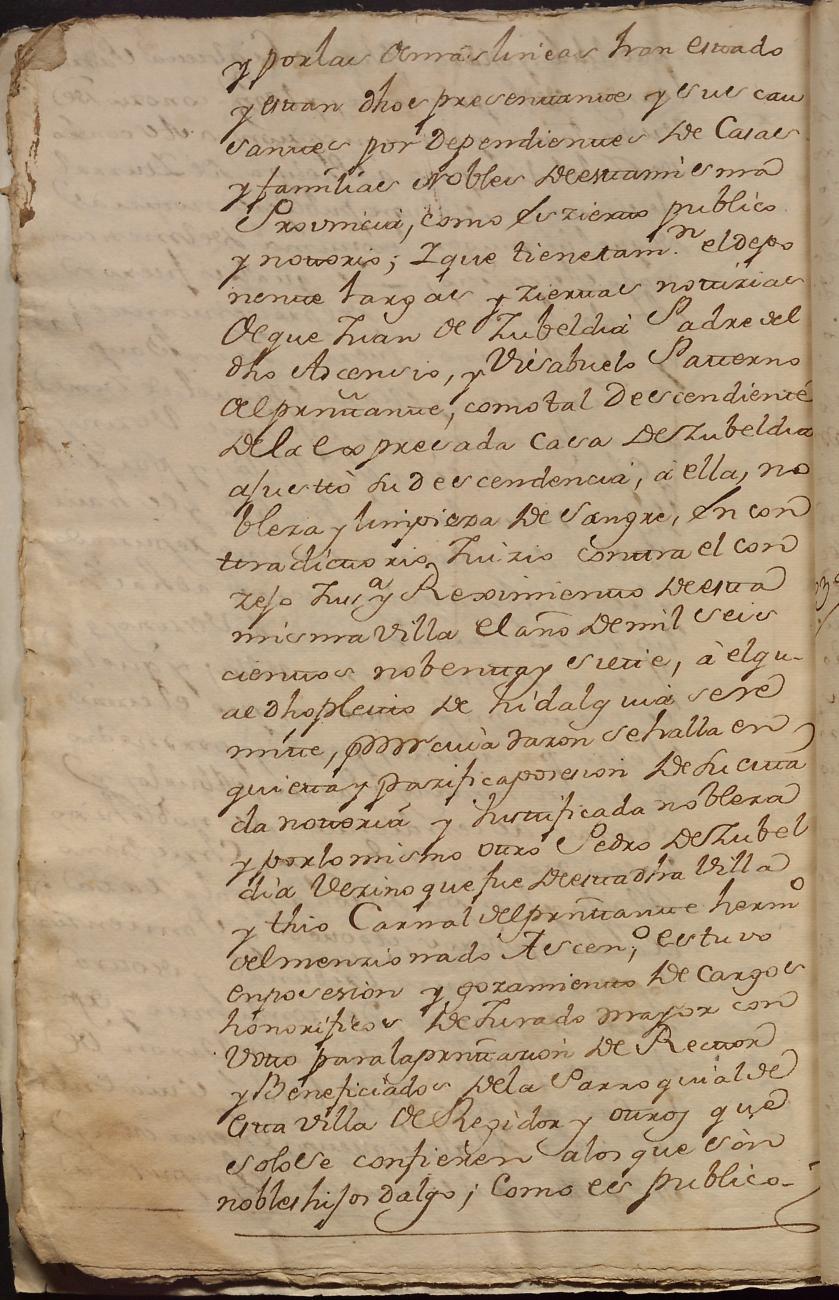 y por las demas lineas han estado
y estan dhos presentante y sus cau
santes por Dependientes de Casas
y familias Nobles de esta misma
Provincia, como es zierto publico
y notorio; Y que tiene tam.n el depo
nente largas y ziertas notizias
de que Juan de Zubeldia Padre del
dho Ascensio, y Visabuelo Paterno
del prñtante, como tal Descendiente
de la expresada Casa de Zubeldia
ajusto su Descendencia, á ella, no
bleza y limpieza de Sangre, en con
tradictorio Juizio contra el con
zejo Jus.a y Reximiento de esta
misma Villa el año de mil seis
cientos nobenta y siete, á el qu-
al dho pleito de hidalguia se re
mite, cuia razon se halla en
quieta y pazifica posesion de su cita
da notoria y Justificada nobleza
y por lo mismo otro Pedro de Zubel
dia Vezino que fue de esta dha Villa
y thio Carnal del prñtante hermo
del menzionado Ascen.o; estuvo
en posesion y gozamiento de cargos
honorificos de Jurado mayor con
Voto para la prñtazion de Rector
y Beneficiados de la Parroquial de
esta Villa de Regidor y otros que
solo se confieren a los que son
nobles hijos dalgo; Como es publico-